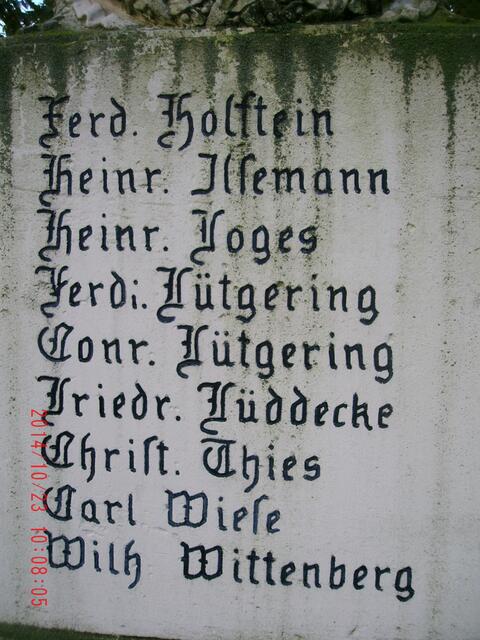 Ferd. Holſtein
Heinr. Ilſemann
Heinr. Voges
Ferdi. Lütgering
Conr. Lütgering
Friedr. Lüddecke
Chriſt. Thies
Carl Wieſe
Wilh Wittenberg
2014/10/23 10:08:05